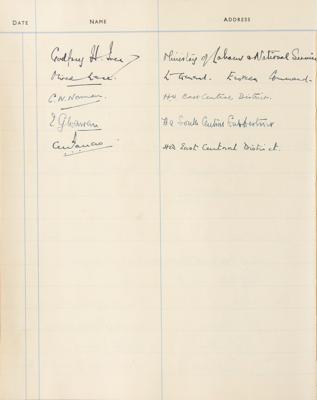 DATE NAME ADDRESS
Godfrey H. Ince Ministry of Labour & National Service
Lt General. Eastern Command.
C.W. Norman. HQ East Central District.
HQ South Central Subdistrict
HQ East Central District.